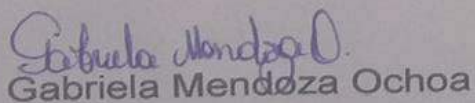 Gabriela Mendoza O.
Gabriela Mendoza Ochoa